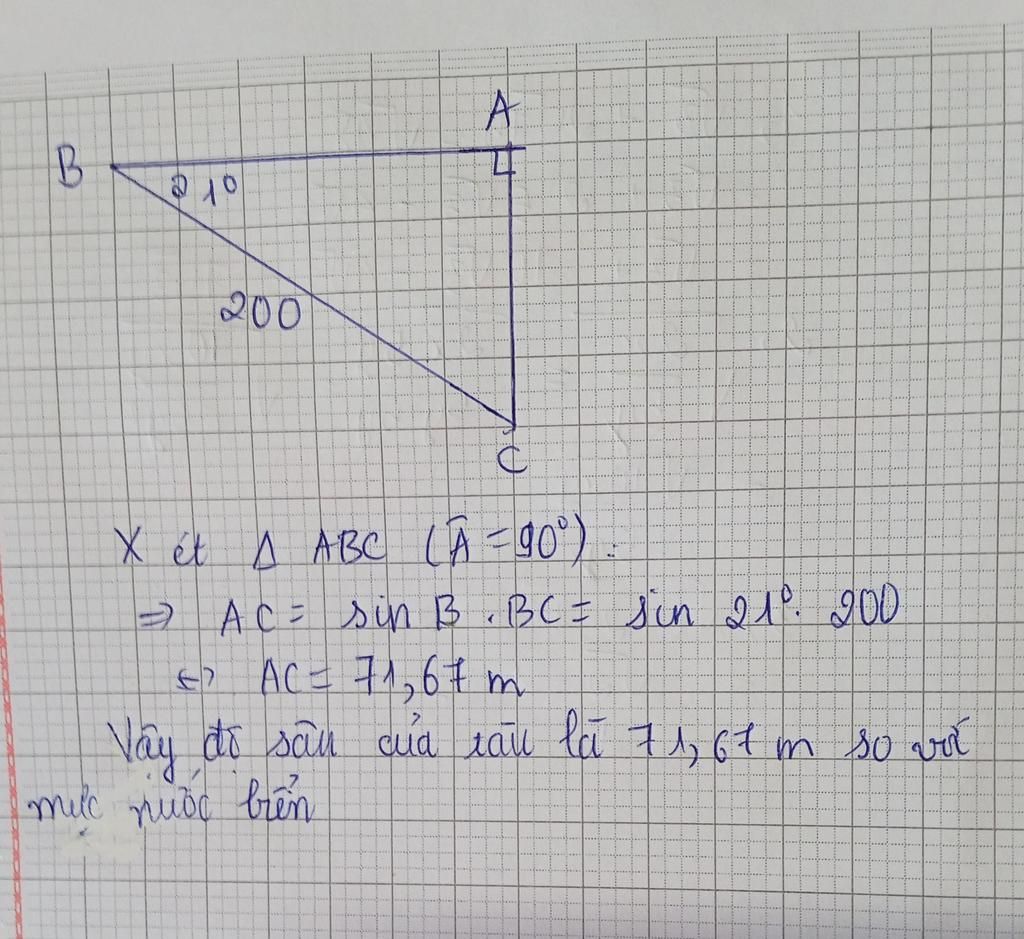 A
B
21°
200
C
Xét Δ ABC (Â = 90°).
⇒ AC = sin B . BC = sin 21° . 200
⇔ AC = 71,67 m
Vậy độ sâu của tàu là 71,67 m so với
mực nước biển